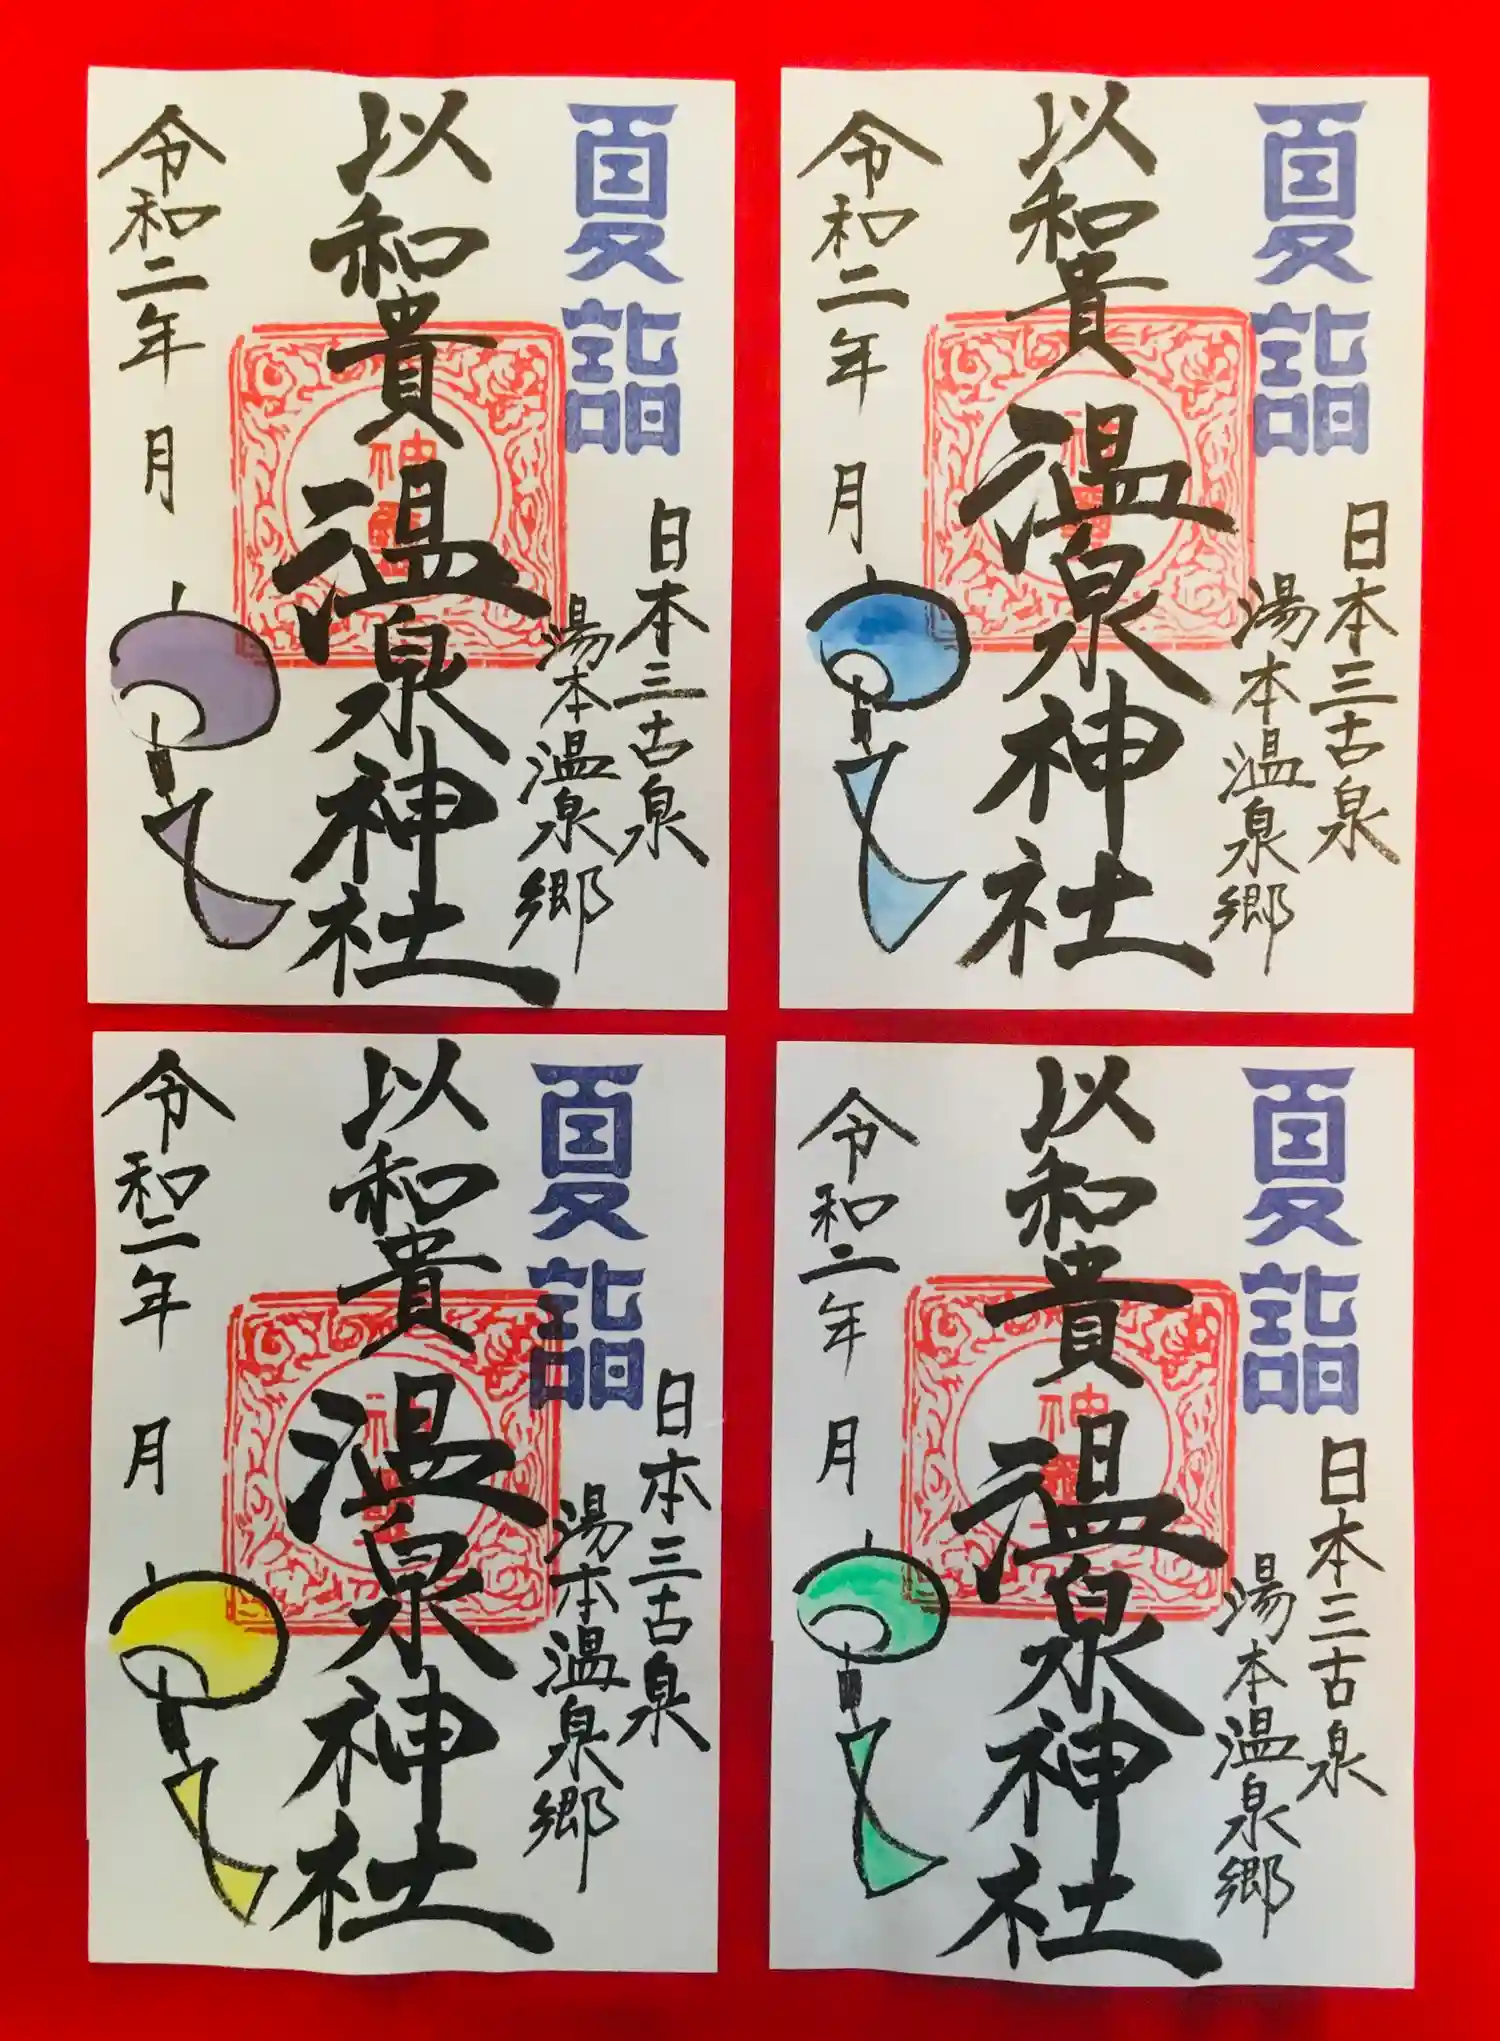 夏詣
日本三古泉
湯本温泉郷
以和貴 温泉神社
令和二年 月
夏詣
日本三古泉
湯本温泉郷
以和貴 温泉神社
令和二年 月
夏詣
日本三古泉
湯本温泉郷
以和貴 温泉神社
令和二年 月
夏詣
日本三古泉
湯本温泉郷
以和貴 温泉神社
令和二年 月